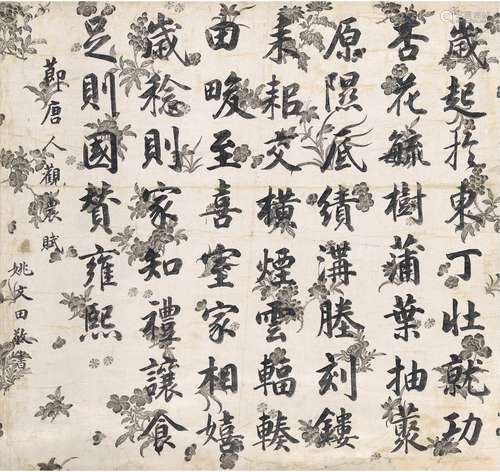 歲起扵東丁壯就功
杏花毓樹蒲葉抽藂
原隰底績溝塍刻鏤
耒耜交橫煙雲輻輳
田畯至喜室家相嬉
歲稔則家知禮讓食
足則國贊雍熙
節唐人觀農賦
姚文田敬書